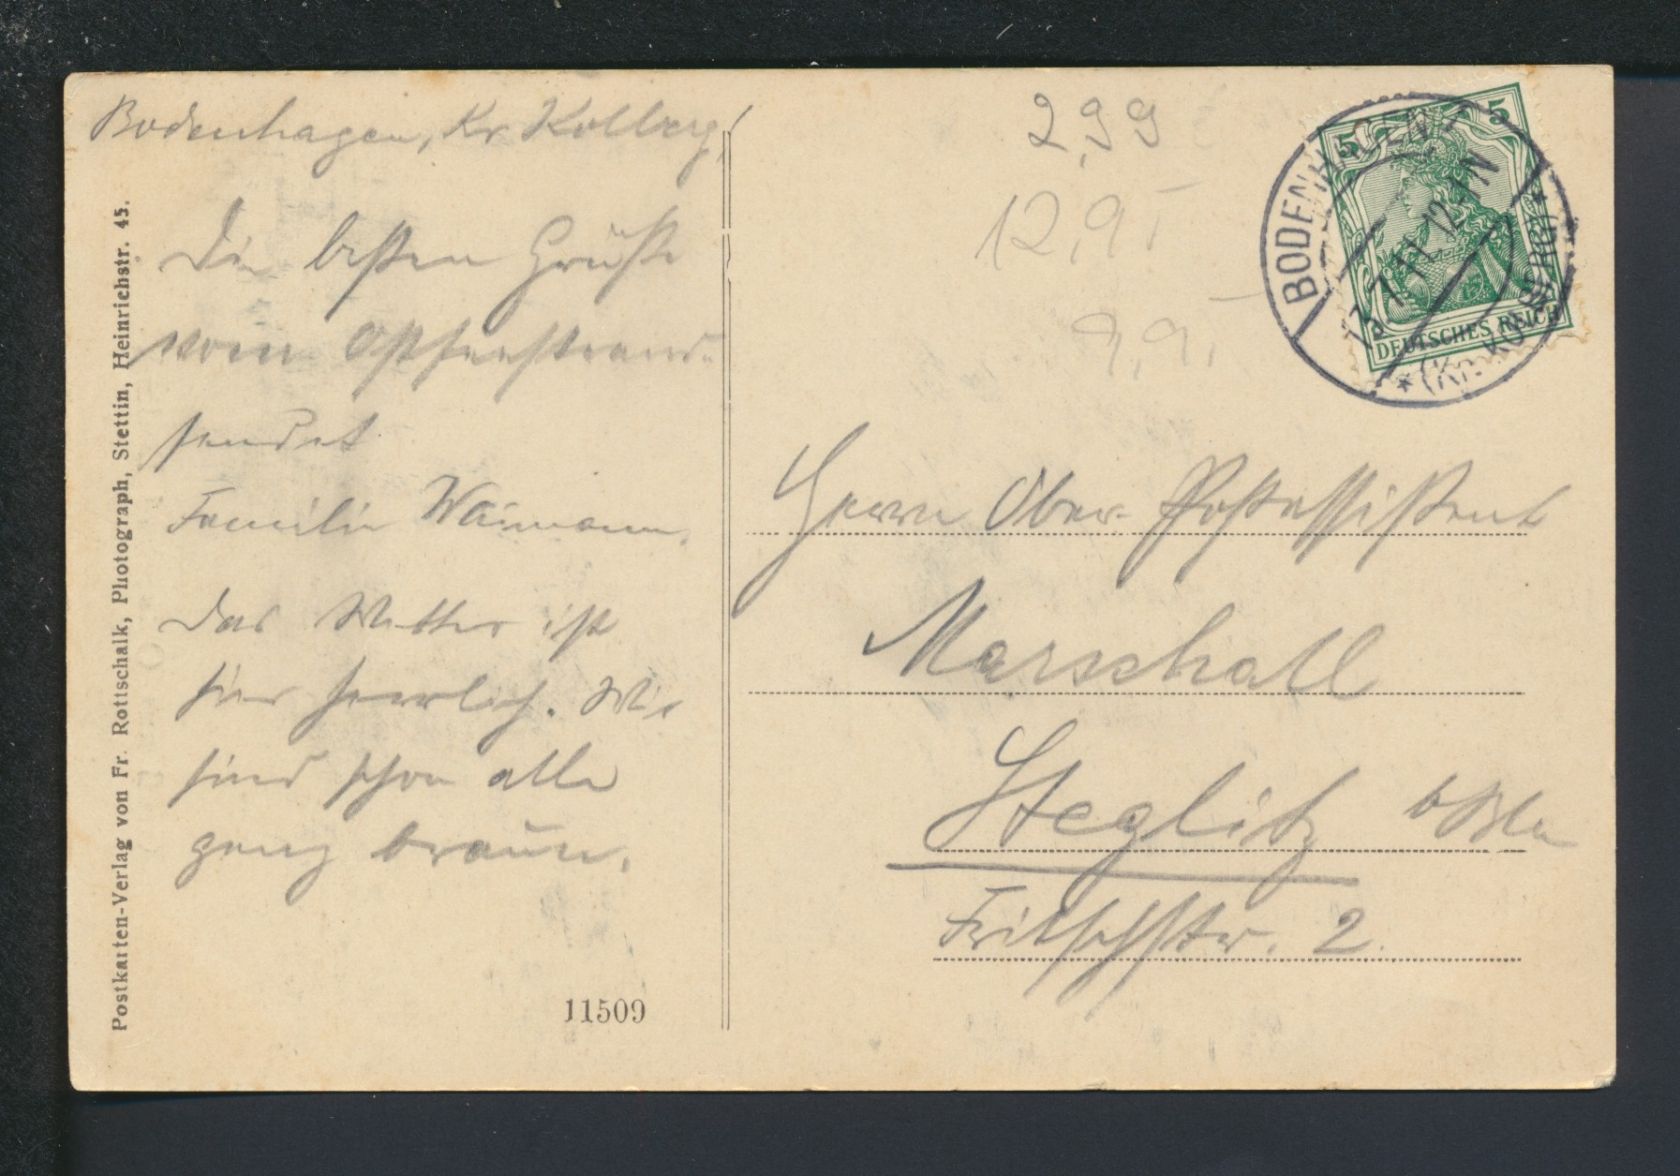 Bodenhagen, Kr. Kolberg,
Die besten Grüße
vom Ostseestrand
sendet
Familie Waimann.
Das Wetter ist
hier herrlich. Wir
sind schon alle
ganz braun.
Postkarten-Verlag von Fr. Rottschalk, Photograph, Stettin, Heinrichstr. 45.
11509
2,99
12,9
9,9
5 5
DEUTSCHES REICH
BODENHAGEN
13.7.11. 12-1N
* (Kr. KOLBERG) *
Herrn Ober-Postassistent
Marschall
Steglitz b/Bln
Fritschstr. 2.